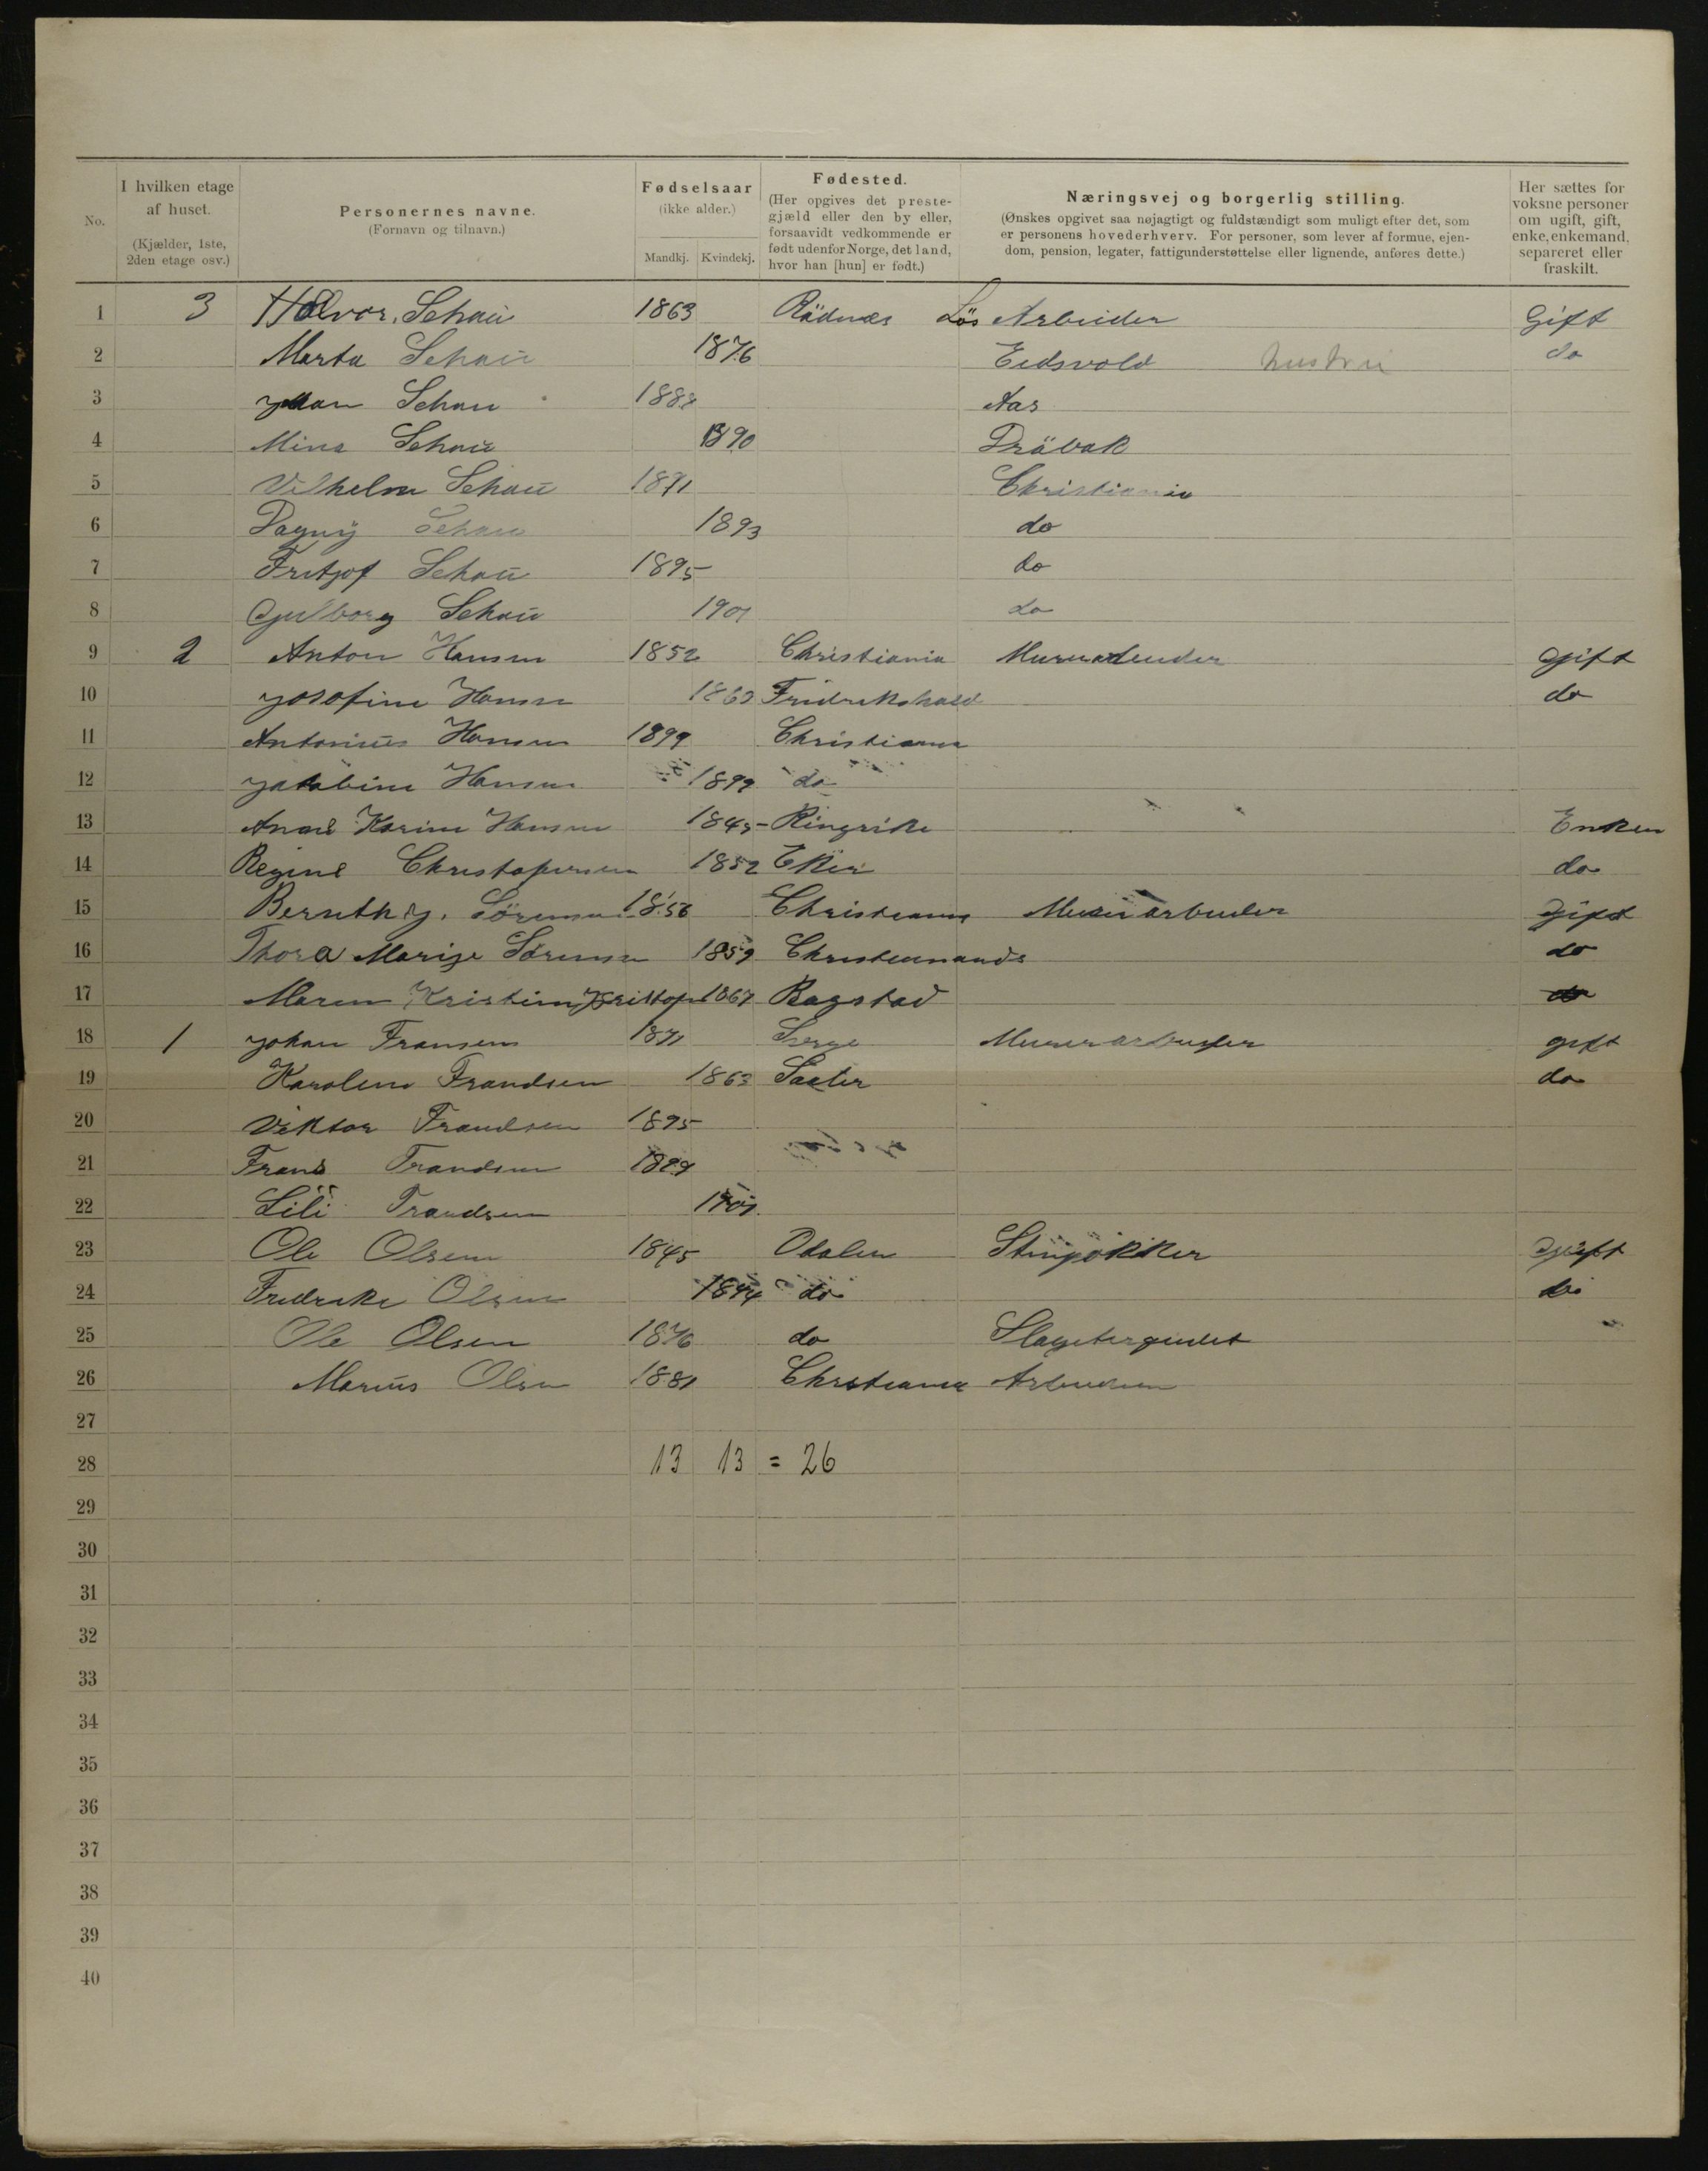 No. I hvilken etage af huset. (Kjælder, 1ste, 2den etage osv.) Personernes navne. (Fornavn og tilnavn.) Fødselsaar (ikke alder.) Mandkj. Kvindekj. Fødested. (Her opgives det prestegjæld eller den by eller, forsaavidt vedkommende er født udenfor Norge, det land, hvor han [hun] er født.) Næringsvej og borgerlig stilling. (Ønskes opgivet saa nøjagtigt og fuldstændigt som muligt efter det, som er personens hovederhverv. For personer, som lever af formue, ejendom, pension, legater, fattigunderstøttelse eller lignende, anføres dette.) Her sættes for voksne personer om ugift, gift, enke, enkemand, separeret eller fraskilt.
1 3 Halvor Schau 1863 Rådnæs Løs Arbeider Gift
2 Marta Schau 1876 Eidsvold hustru do
3 Schau 188 Aas
4 Mina Schau 1890 Dråbak
5 Vilhelm Schau 1871 Christiania
6 Dagny Schau 1893 do
7 Fritjof Schau 1895 do
8 Schau 1901 do
9 2 Anton Hansen 1852 Christiania Murarbeider gift
10 Josofine Hansen 1863 Fridrikshald do
11 Antonius Hansen 1899 Christiania
12 Jakobine Hansen 1899 do
13 Anne Karine Hansen 1845 Ringrike Enken
14 Regine Christopersen 1852 Eker do
15 Bernth J. Sörensen 1856 Christiania Murerarbeider Gift
16 Thora Marie Sørensen 1859 Christiansands do
17 Maren Kristine Kristop 1867 Bagstad do
18 1 Johan Fransens 1871 Murerarbeider gift
19 Karoline Frandsen 1863 Saeter do
20 Viktor Frandsen 1895
21 Frans Frandsen 1899
22 Lili Frandsen 1901
23 Ole Olsen 1845 Odalen Stenpokker Gift
24 Fredrike Olsen 1844 do do
25 Ole Olsen 1876 do
26 Marius Olsen 1881 Christiania Arbeider
27
28 13 13 = 26
29
30
31
32
33
34
35
36
37
38
39
40